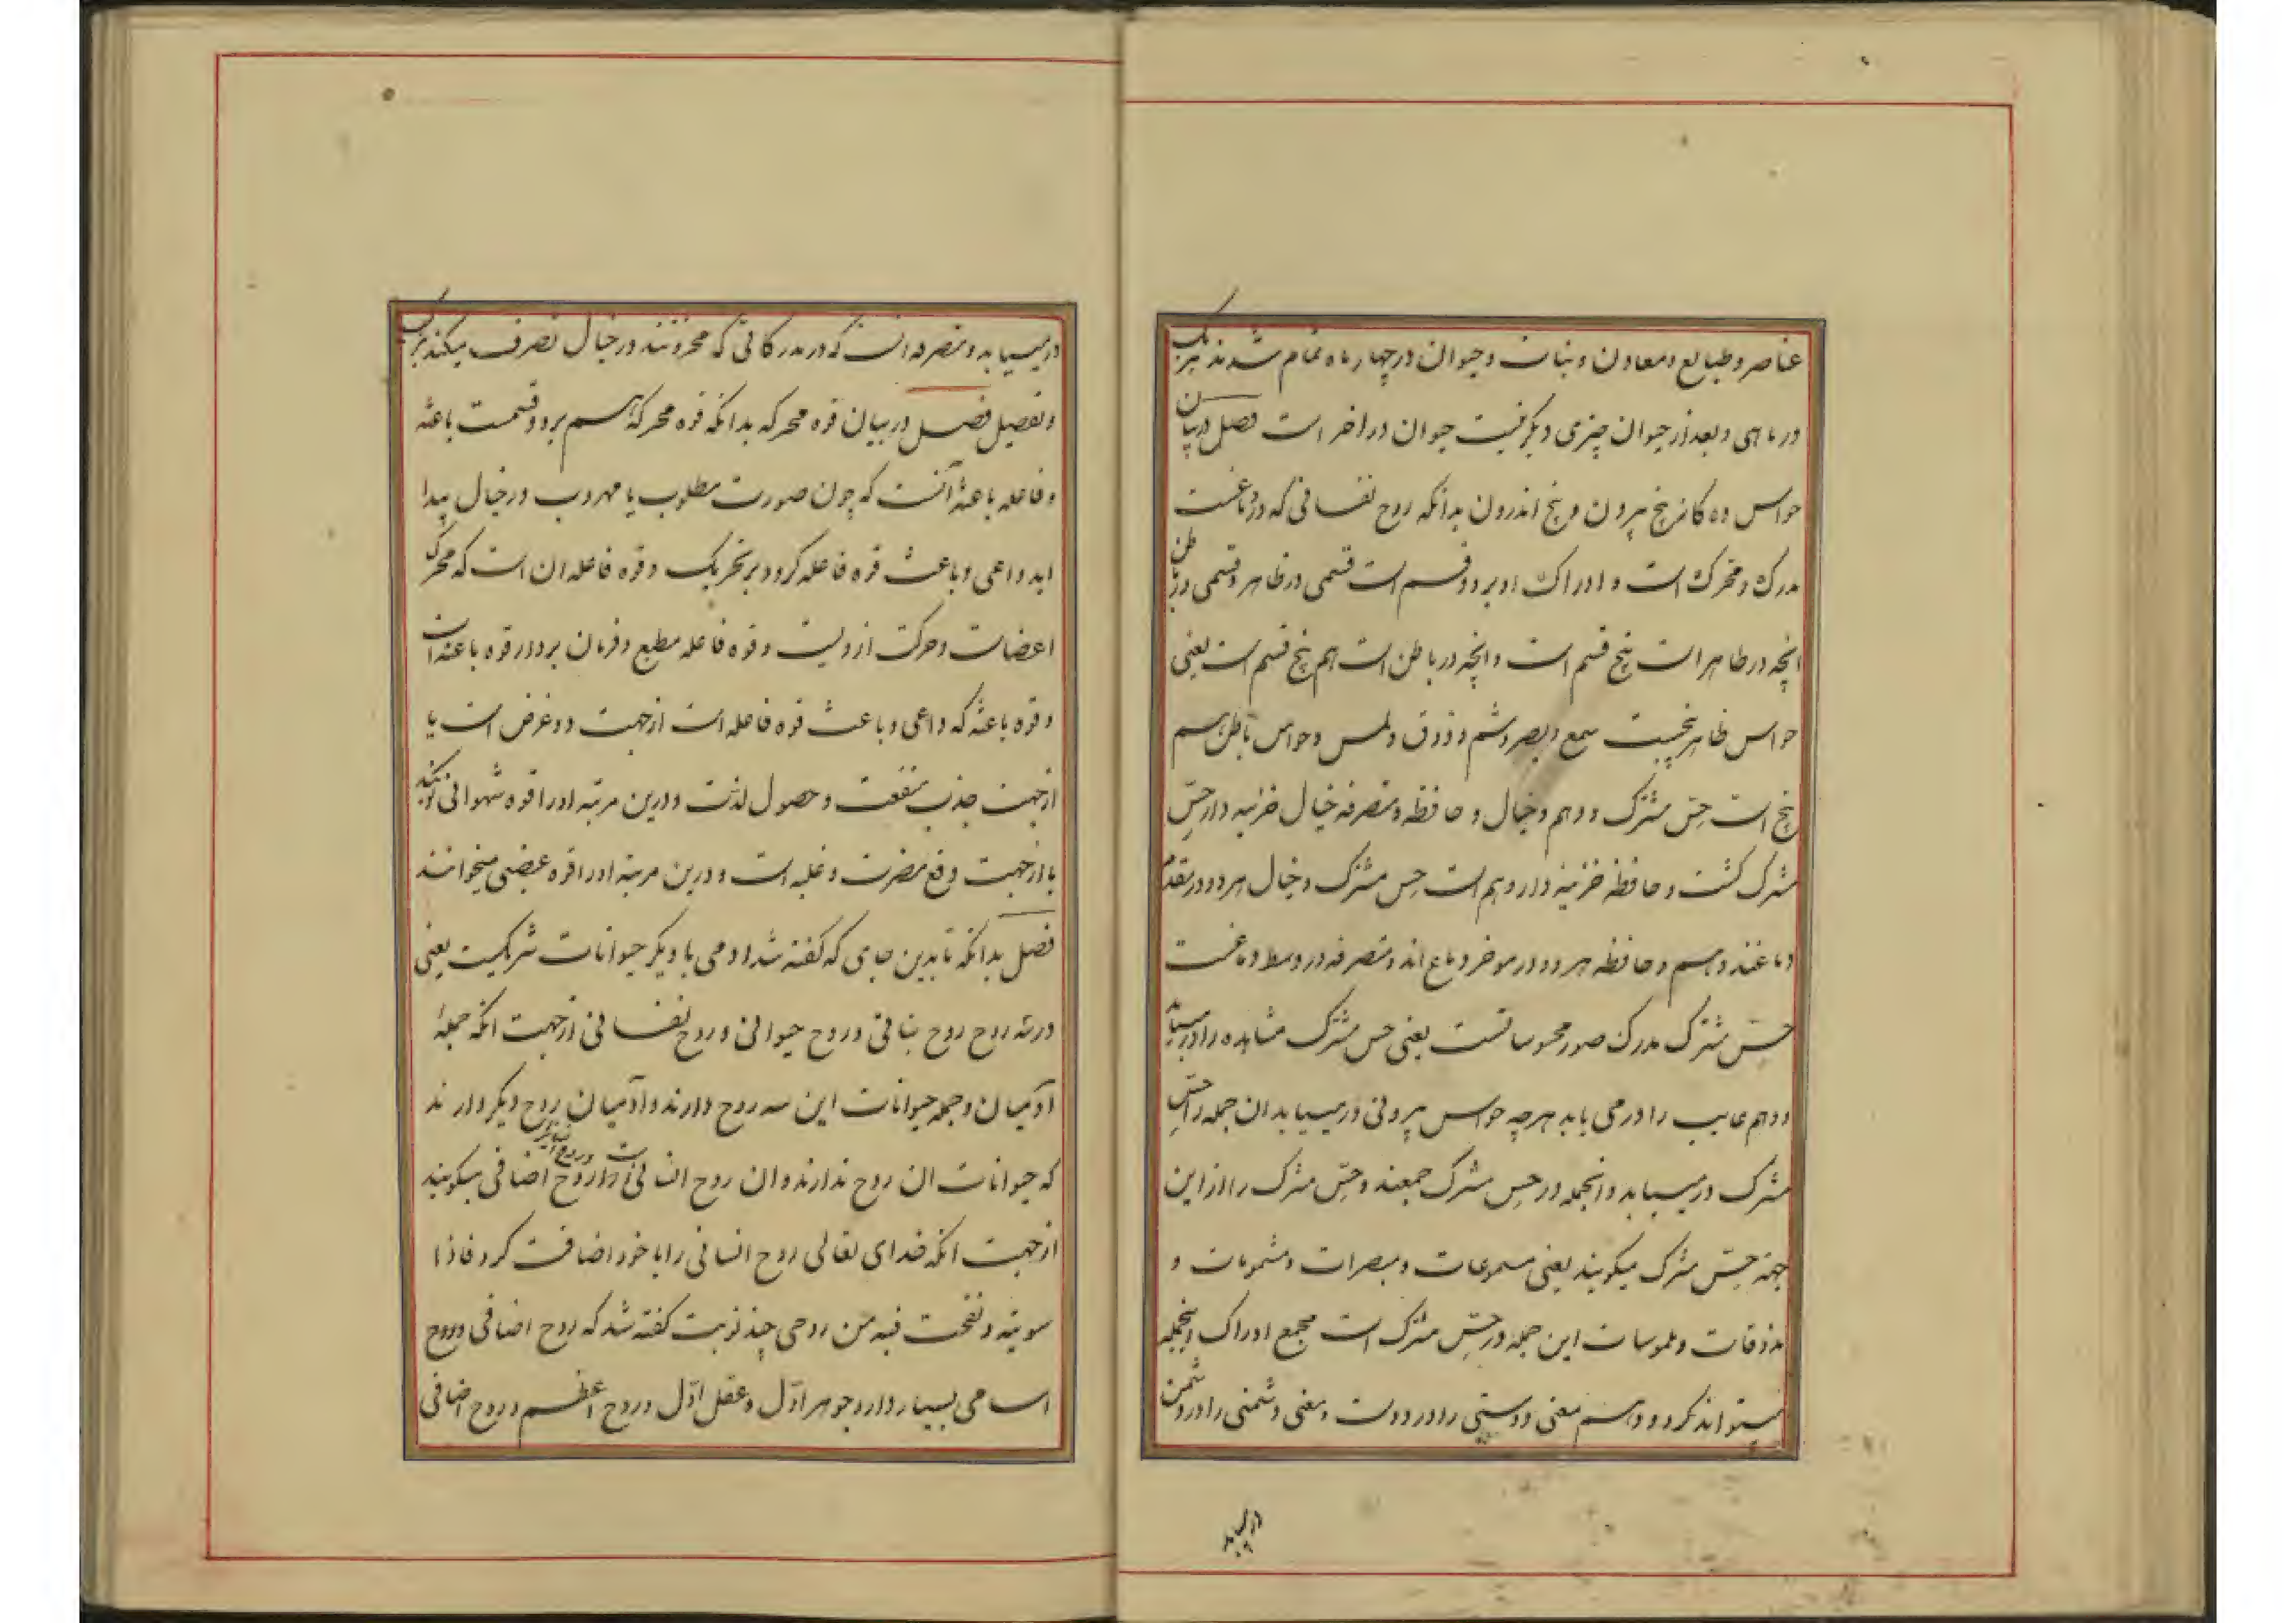 عناصر و طبایع و معادن و نبات و حیوان در چهار ماه تمام شدند هر یک
در ماهی و بعد از حیوان چیزی دیگر نیست حیوان در اخر است فصل در بیان
حواس ده کانه پنج بیرون و پنج اندرون بدانکه روح نفسانی که در دماغست
مدرک و محرک است و ادراک او بر دو قسم است قسمی در ظاهر و قسمی در باطن
انچه در ظاهر است پنج قسم است و انچه در باطن است هم پنج قسم است یعنی
حواس ظاهر پنجست سمع و بصر و شم و ذوق و لمس و حواس باطن هم
پنج است حس مشترک و وهم و خیال و حافظه و متصرفه خیال خزینه دار حس
مشترک کشت و حافظه خزینه دار وهم است حس مشترک و خیال هر دو در مقدم
دماغند و وهم و حافظه هر دو در موخر دماغ اند و متصرفه در وسط دماغست
حس مشترک مدرک صور محسوساتست یعنی حس مشترک مشاهده را در میابد
و وهم غایب را در می یابد هر چه حواس بیرونی در میابد ان جمله را حس
مشترک در میابد و انجمله در حس مشترک جمعند و حس مشترک را از این
جهته حس مشترک میکویند یعنی مسموعات و مبصرات و مشمومات و
مذوقات و ملموسات این جمله در حس مشترک است مجمع ادراک اینجمله
میتواند کرد و وهم معنی دوستی را در دوست و معنی دشمنی را در دشمن
در میابد و متصرفه انست که در مدرکاتی که مخزونند در خیال تصرف میکند بترکیب
و تفصیل فصل در بیان قوه محرکه بدانکه قوه محرکه هم بر دو قسمت باعثه
و فاعله باعثه آنست که چون صورت مطلوب یا مهروب در خیال پیدا
اید داعی و باعث قوه فاعله کردد بر تحریک و قوه فاعله ان است که محرک
اعضاست و حرکت ازویست و قوه فاعله مطیع و فرمان بردار قوه باعثه است
و قوه باعثه که داعی و باعث قوه فاعله است از جهت دو غرض است یا
از جهت جذب منفعت و حصول لذت و درین مرتبه او را قوه شهوانی کویند
یا از جهت دفع مضرت و غلبه است و درین مرتبه او را قوه غضبی میخوانند
فصل بدانکه تا بدین جای که کفته شد ادمی با دیکر حیوانات شریکست یعنی
در سه روح روح نباتی و روح حیوانی و روح نفسانی از جهت انکه جملهٔ
آدمیان و جمله حیوانات این سه روح دارند و آدمیان روح دیکر دارند
که حیوانات ان روح ندارند و ان روح انسانی است و روح اضافی میکویند
از جهت انکه خدای تعالی روح انسانی را با خود اضافت کرد فاذا
سویته و نفخت فیه من روحی چند نوبت کفته شد که روح اضافی و روح
اسامی بسیار دارد جوهر اوّل و عقل اوّل و روح اعظم و روح اضافی